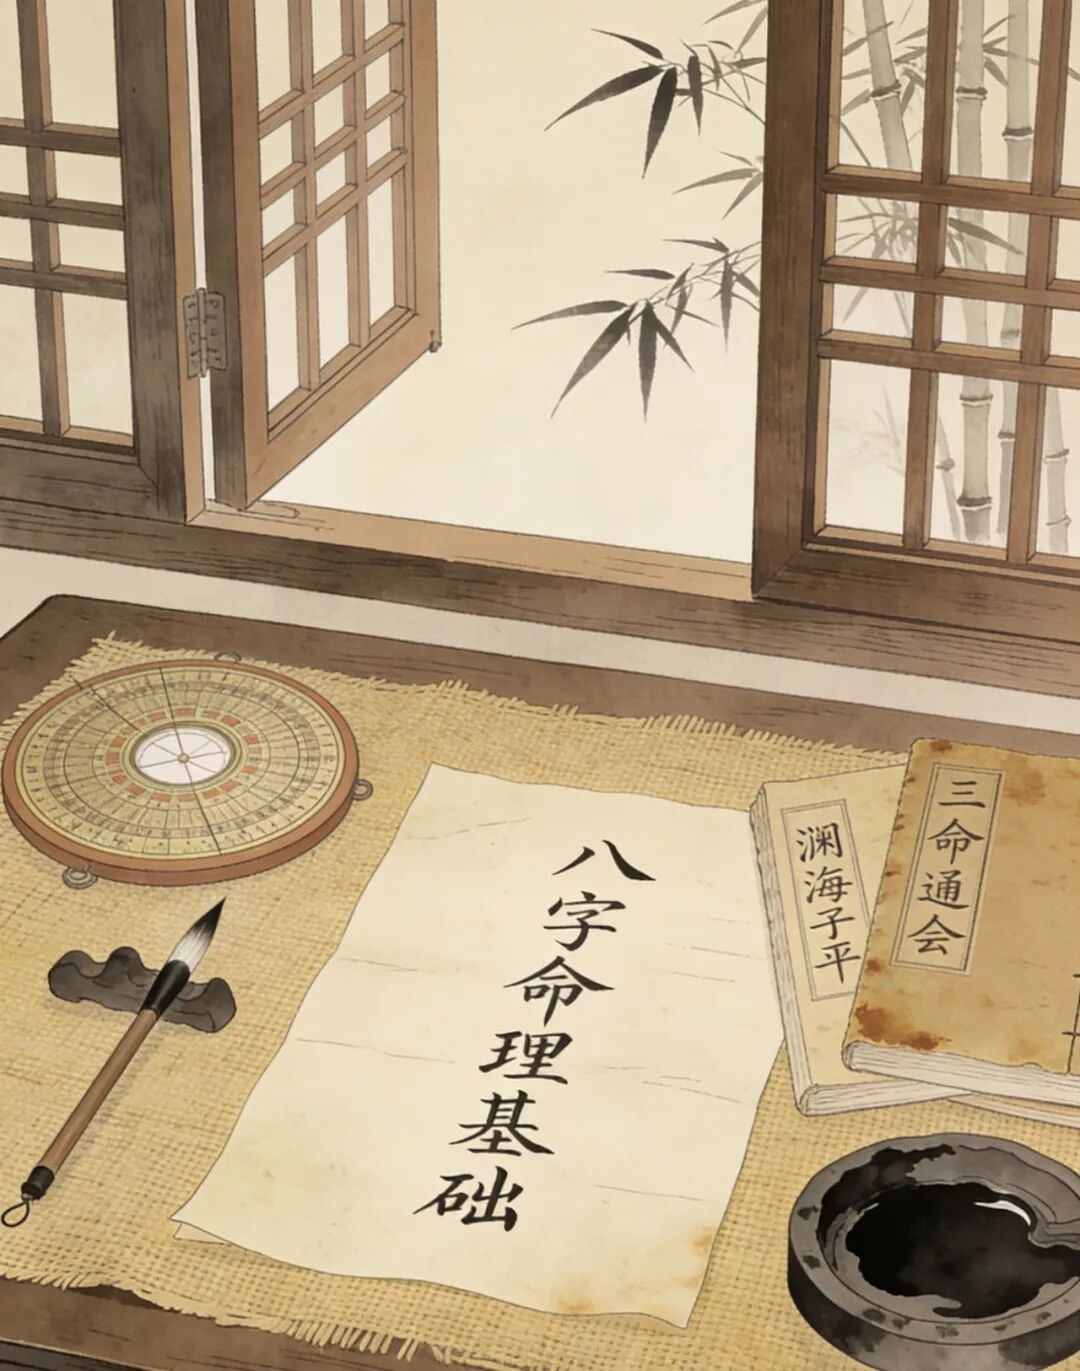 八字命理基础
澜海子平
三命通会